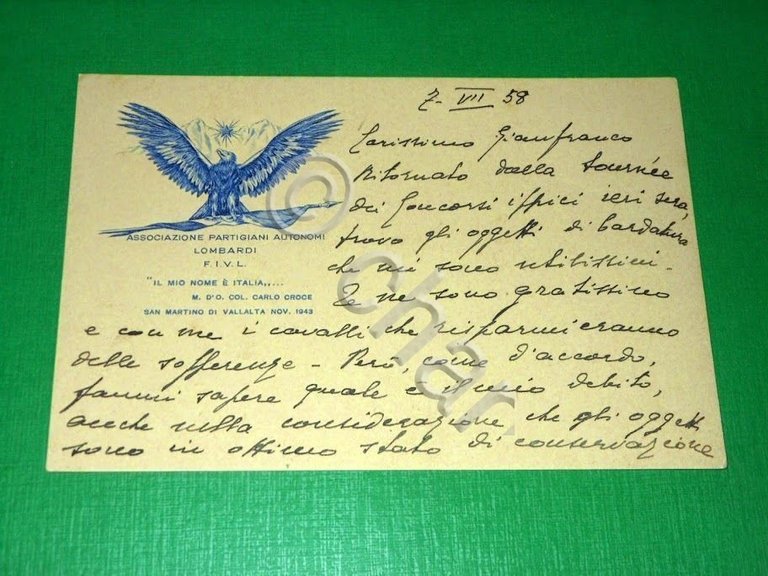 7 - VII 58
ASSOCIAZIONE PARTIGIANI AUTONOMI
LOMBARDI
F.I.V.L.
"IL MIO NOME È ITALIA,,...
M. D'O. COL. CARLO CROCE
SAN MARTINO DI VALLALTA NOV. 1943
Carissimo Gianfranco
Ritornato dalla tournée
dei Concorsi ippici ieri sera,
trovo gli oggetti di bardatura
che mi sono utilissimi -
Te ne sono gratissimo
e con me i cavalli che risparmieranno
delle sofferenze - Però, come d'accordo,
fammi sapere quale è il mio debito,
anche nella considerazione che gli oggetti
sono in ottimo stato di conservazione
© char